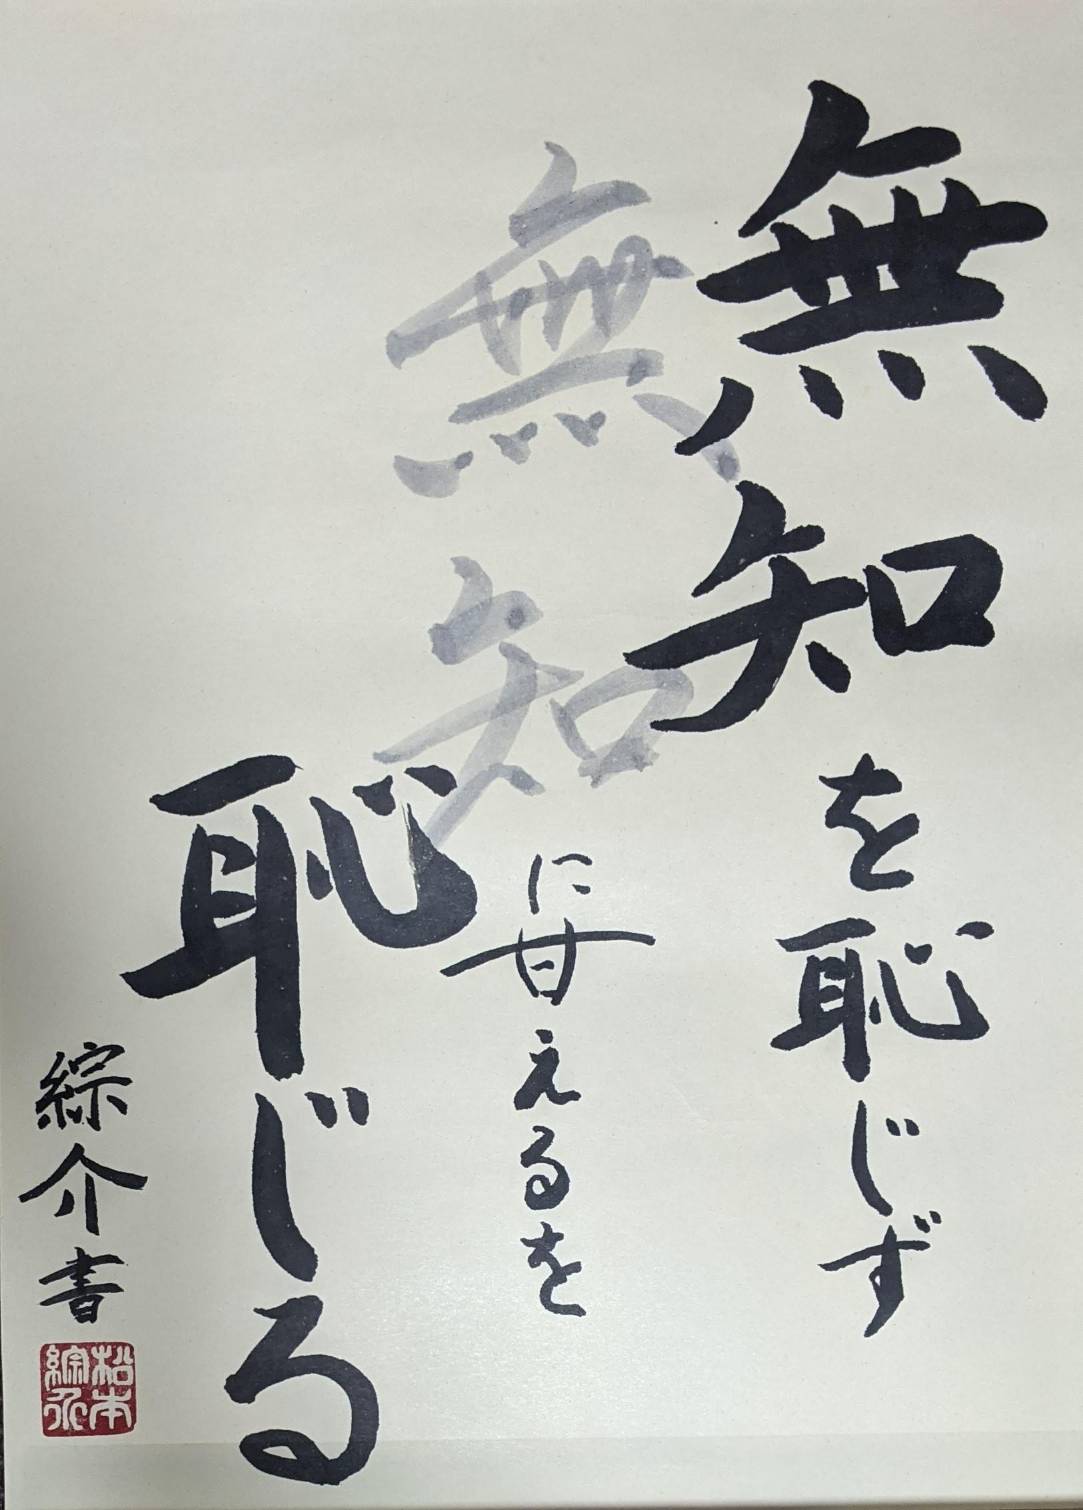 無知を恥じず
無知に甘えるを
恥じる
綜介書
松本
綜介